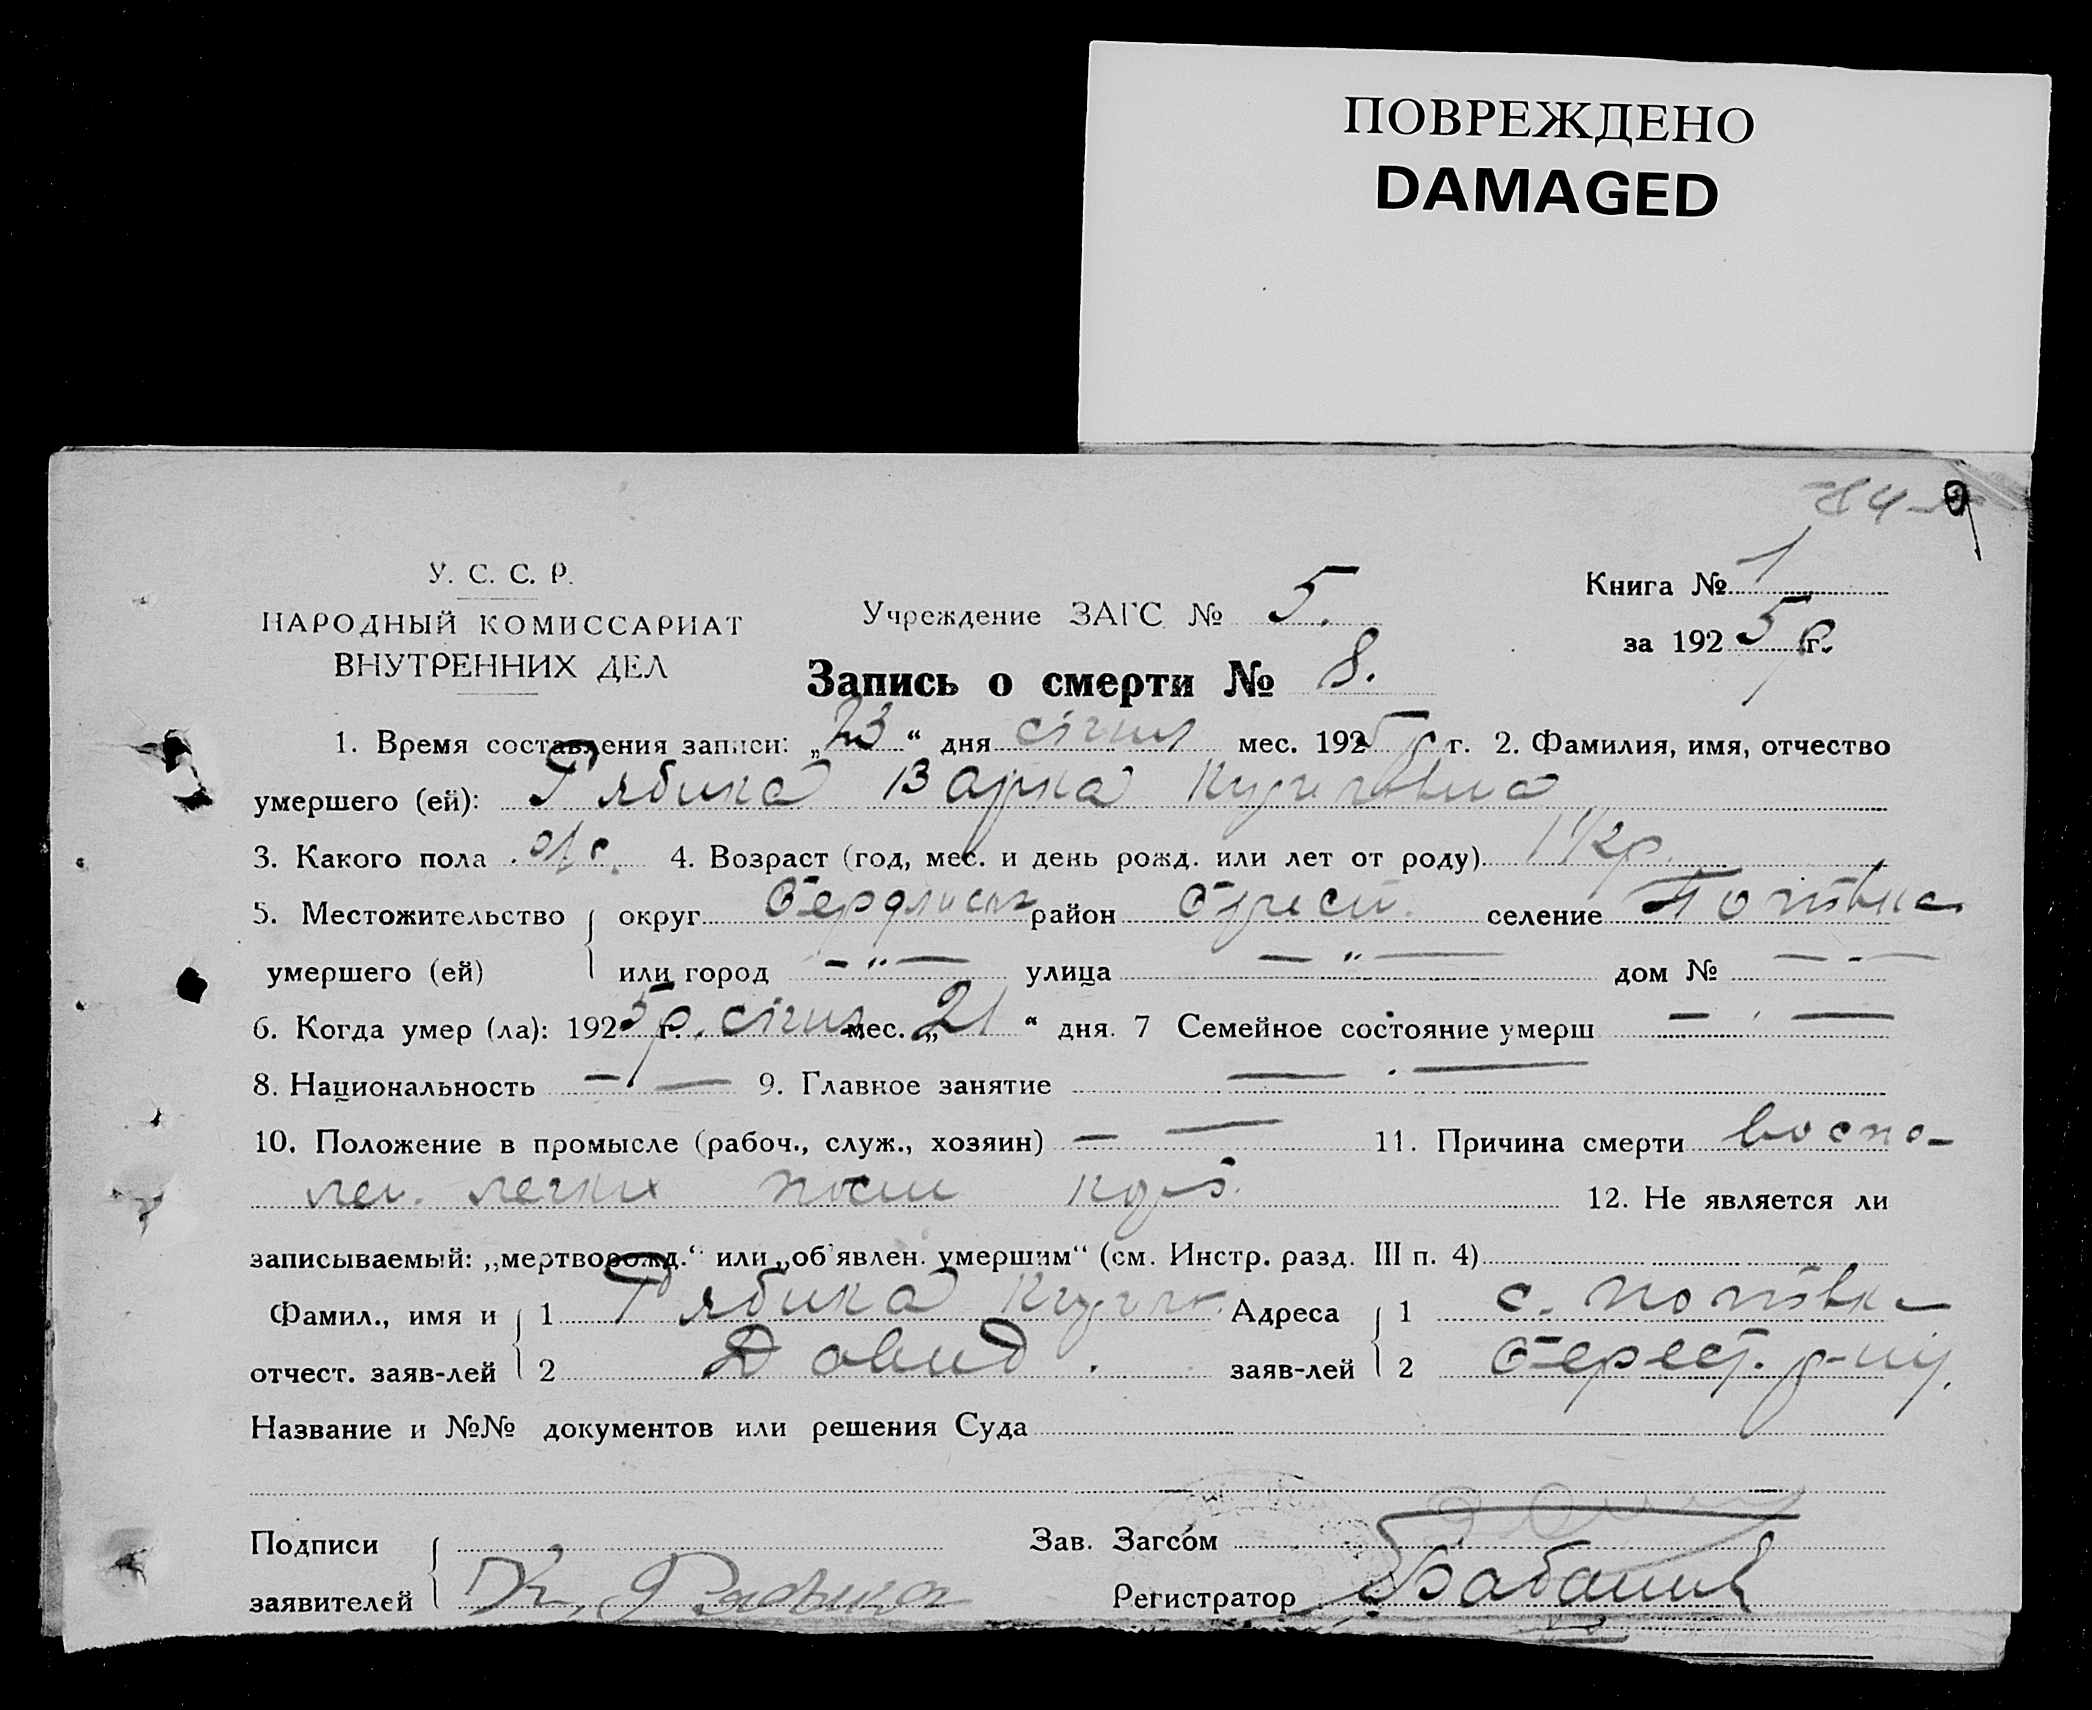 ПОВРЕЖДЕНО
DAMAGED
У. С. С. Р.
НАРОДНЫЙ КОМИССАРИАТ
ВНУТРЕННИХ ДЕЛ
Учреждение ЗАГС № 5.
Книга № 1
за 1925 р г.
Запись о смерти № 8.
1. Время составления записи: „23“ дня січня мес. 1925 р г. 2. Фамилия, имя, отчество
умершего (ей): Рябика Варка
3. Какого пола ж. 4. Возраст (год, мес. и день рожд. или лет от роду) 1 1/2 р.
5. Местожительство округ Бердянськ район селение Попівка
умершего (ей) или город — „ — улица — „ — дом № — - —
6. Когда умер (ла): 1925 р. г. січня мес. „21“ дня. 7 Семейное состояние умерш — . —
8. Национальность — . — 9. Главное занятие — . —
10. Положение в промысле (рабоч., служ., хозяин) — — 11. Причина смерти воспа-
лен. легких после
12. Не является ли
записываемый: „мертворожд.“ или „об'явлен. умершим“ (см. Инстр. разд. III п. 4)
Фамил., имя и 1 Рябика Адреса 1 с. Попівка
отчест. заяв-лей 2 Давид. заяв-лей 2 Берест. р-ну.
Название и №№ документов или решения Суда
Подписи Зав. Загсом
заявителей К. Рябика Регистратор